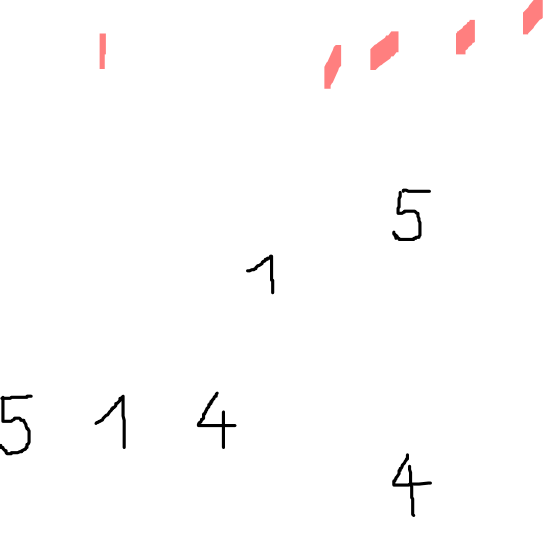 5
1
5 1 4
4